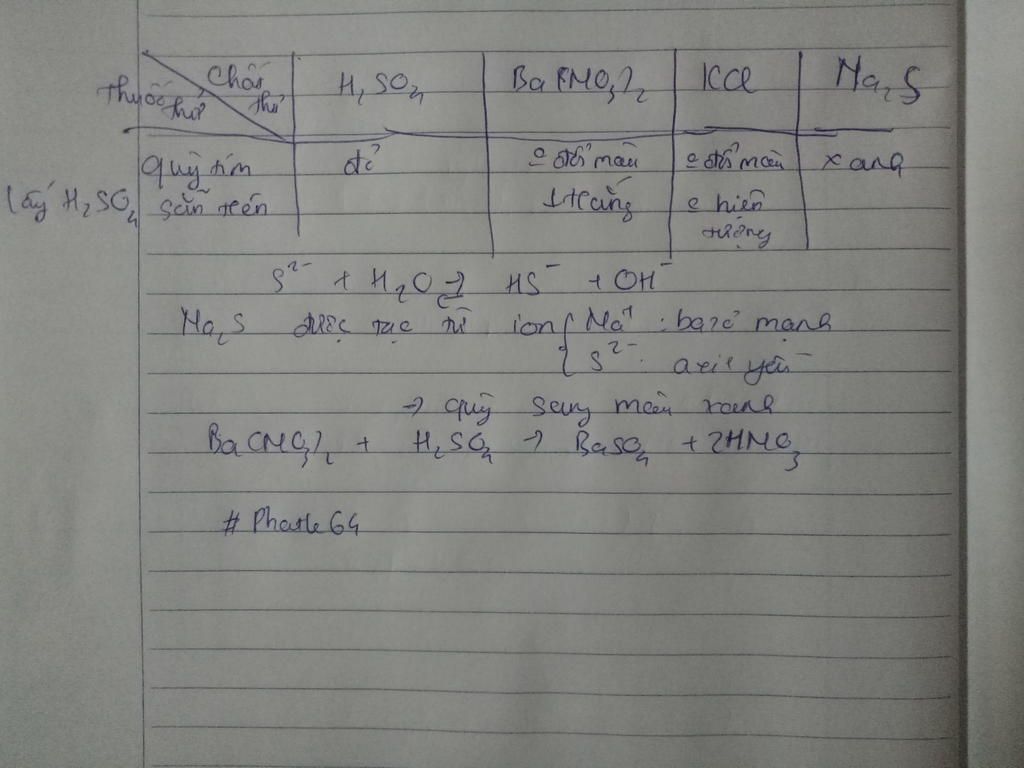 Thuốc thử Chất thử H₂SO₄ Ba(NO₃)₂ KCl Na₂S
Quỳ tím đỏ 0 đổi màu 0 đổi màu xanh
Lấy H₂SO₄ sẵn trên ↓ trắng 0 hiện
tượng
S²⁻ + H₂O ⇌ HS⁻ + OH⁻
Na₂S được tạc từ ion { Na⁺ : bazơ mạnh
S²⁻ : axit yếu
→ quỳ sang màu xanh
Ba(NO₃)₂ + H₂SO₄ → BaSO₄ + 2HNO₃